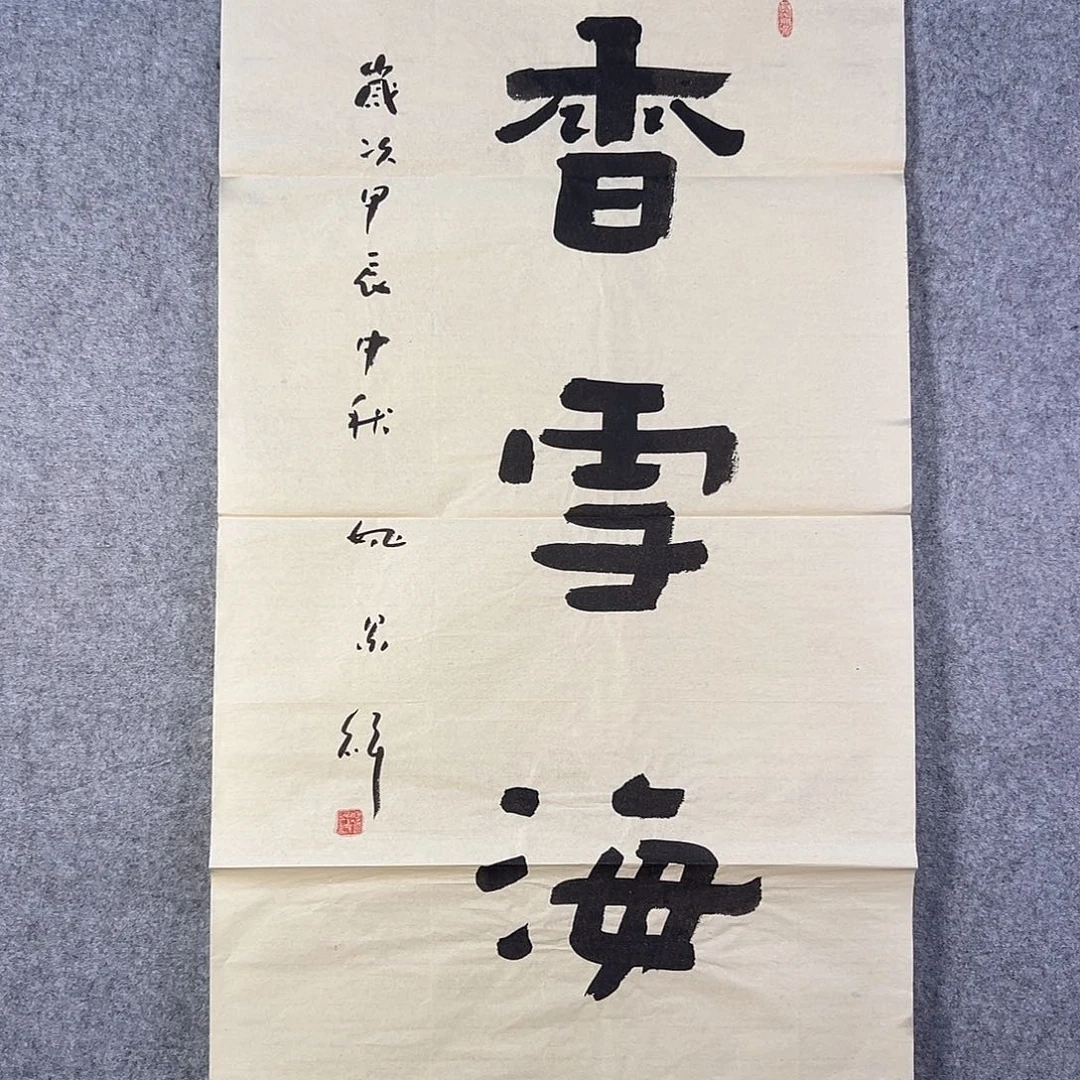 香雪海
歲次甲辰中秋 姚